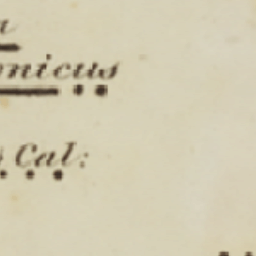 a
onicus
s Cal: